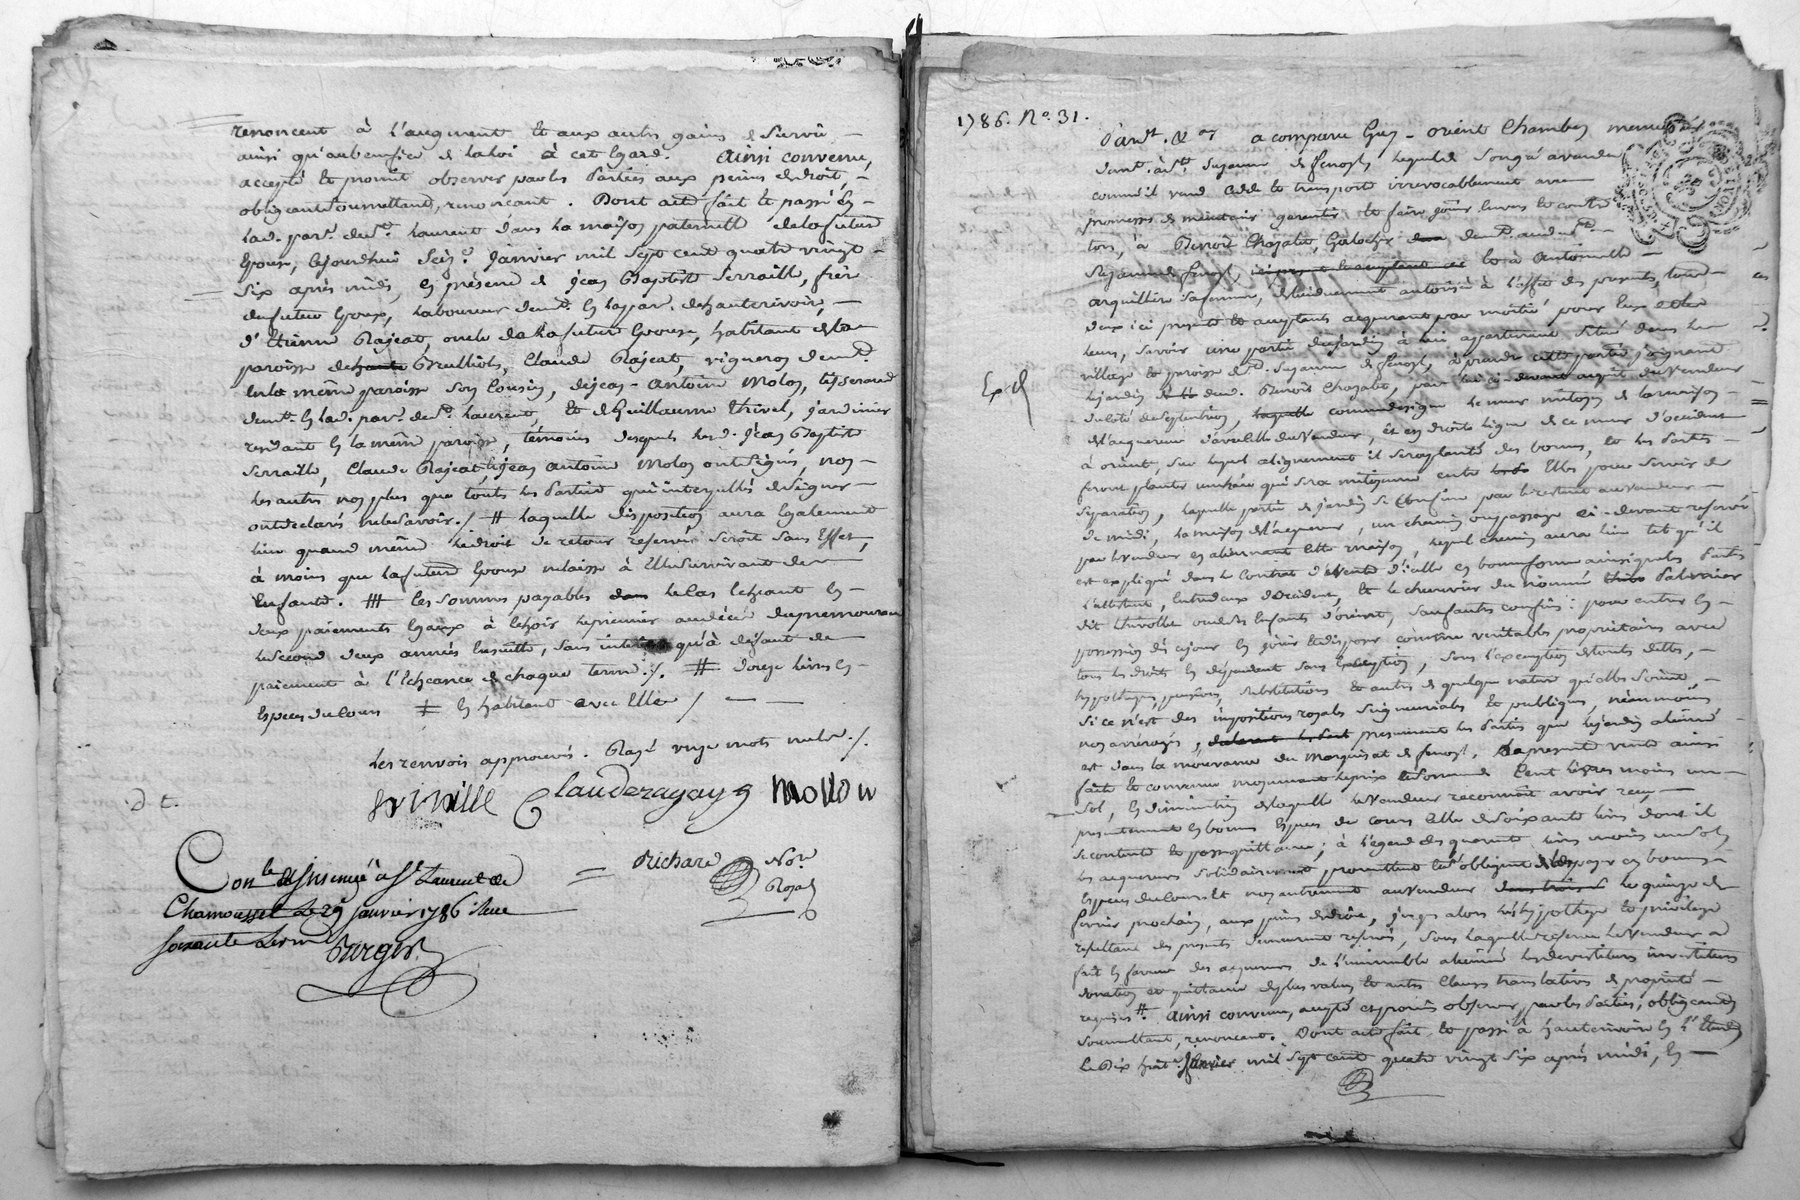 renoncent à l'augment et aux autres gains de survie
ainsi qu'au benefice de la loi à cet égard. Ainsi convenu,
accepté et promit observer par les parties aux peines de droit,
obligeant soumettant, renonçant. Dont acte fait et passé en
lad. par. de St. Laurent dans la maison paternelle de la future
Epouse, cejourdhui janvier mil sept cent quatre vingt
six après midi, en présence de jean Baptiste Serraille, frère
du futur Epoux, laboureur demt. en la par. de hauterivoire,
d'Etienne Rajeat, oncle de la future Epouse, habitant de la
paroisse de Brulliole, Claude Rajeat, vigneron demt.
en la même paroisse son cousin, de jean-Antoine Molon, tisserand
demt. en lad. par. de St. Laurent, et de Guillaume Trivel, jardinier
residant en la même paroisse, témoins desquels led. jean Baptiste
Serraille, Claude Rajeat, et jean Antoine Molon ont signés, non
les autres non plus que toutes les parties qui interpellés de signer
ont declarés ne le savoir ./. # laquelle disposition aura également
lieu quand même le droit de retour reservé seroit sans effet,
à moins que la future Epouse ne laisse à elle survivant des
enfants. ### les sommes payables le cas échéant en
deux paiements egaux à échoir le premier au décès du premourant
le second deux années ensuite, sans intérêt qu'à defaut de
paiement à l'échéance de chaque terme ./. # douze livres en
especes du cours ‡ en habitant avec elle /
Les renvois approuvés. Rayé mots nuls ./.
Serraille Clauderagay Mollon
Richard Nore
Royal
Conle. et Insinué à St Laurent de
Chamousset le 29 janvier 1786 reçu
1786. No. 31.
Expd
a comparu Guy-orient Chambe,
demt. à St. Suzanne de fenoyl, lequel de son gré a vendu
comme il vend cède et transporte irrevocablement avec
promesses de maintenir garantir et faire jouir envers et contre
tous, à Benoit Chazalet, Galocher demt. aud. St.
Suzanne de fenoyl, et à Antoinette
arquillière sa femme, de lui duement autorisée à l'effet des presents, tous
deux ici presents et acceptants acquerant par moitié pour eux et les
leurs, savoir une partie de jardin à lui appartenant situé dans le
village et paroisse de St. Suzanne de fenoyl, à prendre cette partie joignant
le jardin dud. Benoit Chazalet, par lui ci-devant acquit du vendeur
du coté de septentrion, comme designe le mur mitoyen de la maison
de l'acquereur d'avec celle du vendeur, et en droite ligne de ce mur d'occident
à orient, sur lequel alignement il sera planté des bornes, et les parties
feront planter une haie qui sera mitoyenne entre elles pour servir de
separation, laquelle partie de jardin se confine par le restant au vendeur
de midi, la maison de l'acquereur, un chemin ou passage ci-devant reservé
par le vendeur en alienant cette maison, lequel chemin aura lieu tel qu'il
est expliqué dans le contrat de vente d'icelle en bonne forme ainsi que les parties
l'attestent, entre deux d'occident, et le chenevier du nommé
dit ou de ses enfants d'orient, sauf autres confins: pour entrer en
possession dès ce jour en jouir et disposer comme veritables proprietaires avec
tous les droits en dépendant sans exception, sous l'exemption de toutes dettes,
hypotheques, pensions, substitutions et autres de quelque nature qu'elles soient,
si ce n'est des impositions royales seigneuriales et publiques, néanmoins
non arréragés, presument les parties que le jardin aliené
est dans la mouvance du marquisat de fenoyl. La presente vente ainsi
faite et convenue moyennant le prix et somme de Cent livres moins un
sol, en diminution de laquelle le vendeur reconnoit avoir reçu
presentement en bonnes especes de cours celle de soixante livres dont il
se contente et passe quittance; à l'égard des quarante livres moins un sol
les acquereurs solidairement promettent et s'obligent de les payer en bonnes
especes du cours et non autrement au vendeur le quinze de
fevrier prochain, aux peines de droit, jusqu'alors les hypotheque et privilege
resultant des presents demeurent reservés, sous laquelle reserve le vendeur a
fait en faveur des acquereurs de l'immeuble aliené les devestitures investitures
donation et quittance de plus value et autres clauses translatives de proprieté
requises. Ainsi convenu, accepté et promis observer par les parties, obligeant
soumettant, renonçant. Dont acte fait et passé à hauterivoire en l'Etude
Le Dix huit Janvier mil sept cent quatre vingt six après midi, en